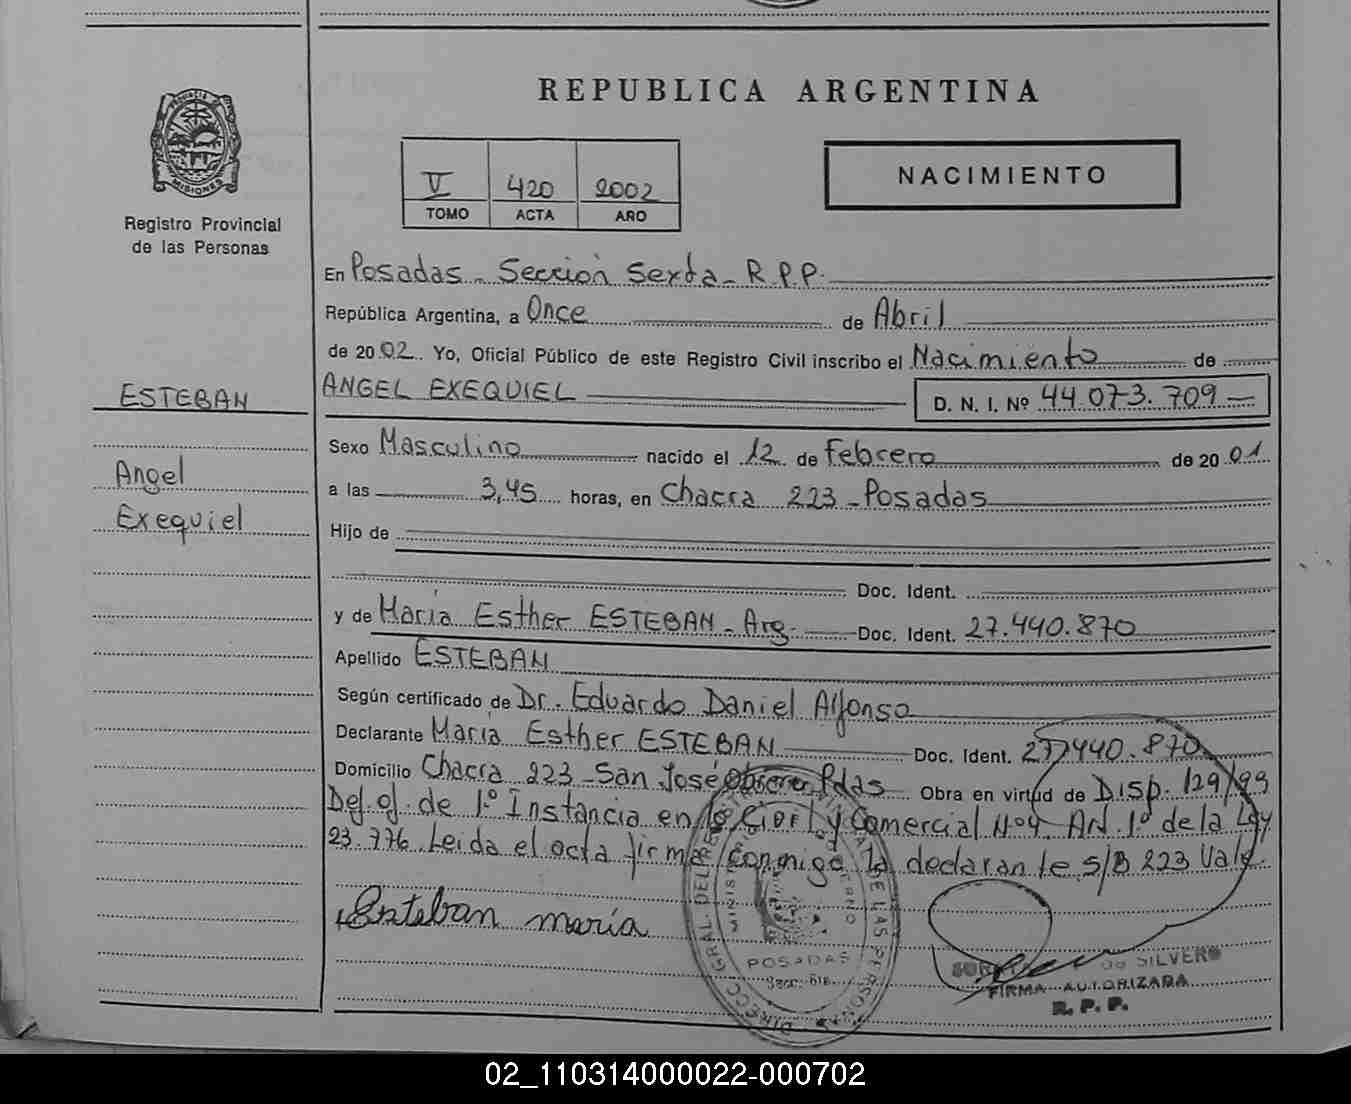 REPUBLICA ARGENTINA
PROVINCIA DE
MISIONES
Registro Provincial
de las Personas
V 420 2002
TOMO ACTA AÑO
NACIMIENTO
En Posadas - Sección Sexta - R.P.P.
República Argentina, a Once de Abril
de 2002. Yo, Oficial Público de este Registro Civil inscribo el Nacimiento de
ESTEBAN
Angel
Exequiel
ANGEL EXEQUIEL D. N. I. Nº 44.073.709 —
Sexo Masculino nacido el 12 de Febrero de 2001
a las 3,45 horas, en Chacra 223 - Posadas
Hijo de
Doc. Ident.
y de María Esther ESTEBAN - Arg. Doc. Ident. 27.440.870
Apellido ESTEBAN
Según certificado de Dr. Eduardo Daniel Alfonso
Declarante María Esther ESTEBAN Doc. Ident. 27.440.870
Domicilio Chacra 223 - San José Obrero Pdas Obra en virtud de Disp. 129/99
Def. of. de 1º Instancia en lo Civil y Comercial Nº 4 Art. 1º de la Ley
23.776. Leida el acta firma conmigo la declarante s/B 223 Vale.
Esteban maría
DIRECC. GRAL. DEL REGISTRO PROVINCIAL DE LAS PERSONAS
POSADAS
Secc. 6ta.
de SILVERO
FIRMA AUTORIZADA
R. P. P.
02_110314000022-000702